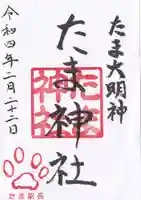 たま大明神
たま神社
たま神社
令和四年二月二十二日
たま駅長